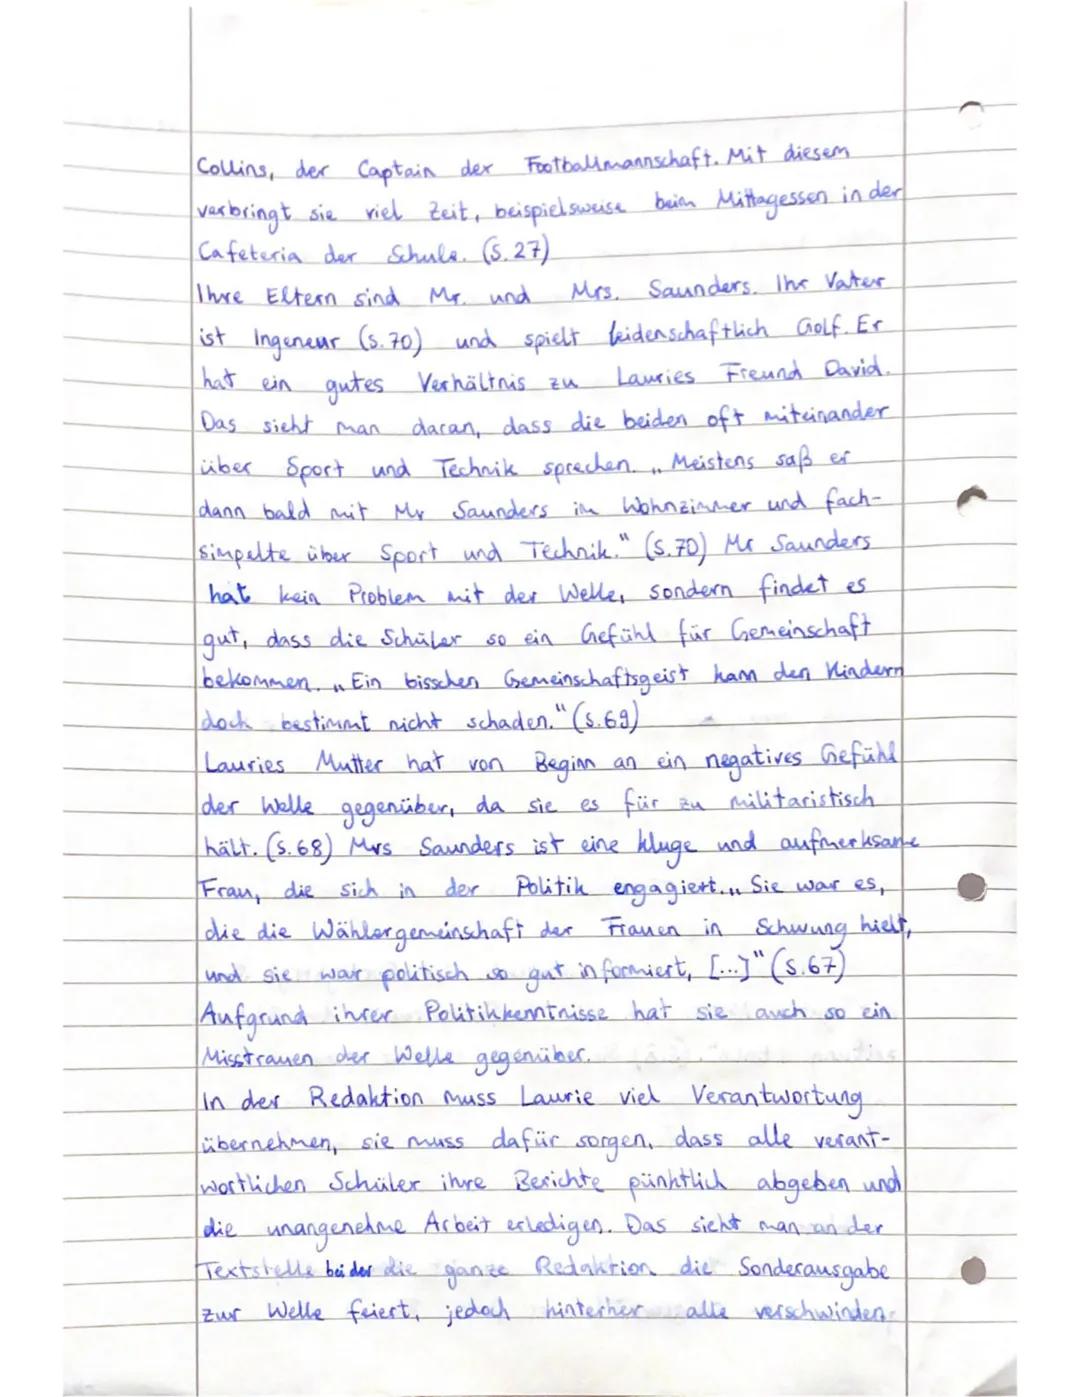 Collins, der Captain der Footballmannschaft. Mit diesem
verbringt sie viel Zeit, beispielsweise beim Mittagessen in der
Cafeteria der Schule. (S. 27)
Ihre Eltern sind Mr. und Mrs. Saunders. Ihr Vater
ist Ingeneur (S. 70) und spielt leidenschaftlich Golf. Er
hat ein gutes Verhältnis zu Lauries Freund David.
Das sieht man daran, dass die beiden oft miteinander
über Sport und Technik sprechen. „Meistens saß er
dann bald mit Mr Saunders im Wohnzimmer und fach-
simpelte über Sport und Technik." (S. 70) Mr Saunders
hat kein Problem mit der Welle, sondern findet es
gut, dass die Schüler so ein Gefühl für Gemeinschaft
bekommen. „Ein bisschen Gemeinschaftsgeist kann den Kindern
doch bestimmt nicht schaden." (S. 69)
Lauries Mutter hat von Beginn an ein negatives Gefühl
der Welle gegenüber, da sie es für zu militaristisch
hält. (S. 68) Mrs Saunders ist eine kluge und aufmerksame
Frau, die sich in der Politik engagiert. „Sie war es,
die die Wählergemeinschaft der Frauen in Schwung hielt,
und sie war politisch so gut informiert, [...]" (S. 67)
Aufgrund ihrer Politikkenntnisse hat sie auch so ein
Misstrauen der Welle gegenüber.
In der Redaktion muss Laurie viel Verantwortung
übernehmen, sie muss dafür sorgen, dass alle verant-
wortlichen Schüler ihre Berichte pünktlich abgeben und
die unangenehme Arbeit erledigen. Das sieht man an der
Textstelle bei der die ganze Redaktion die Sonderausgabe
zur Welle feiert, jedoch hinterher alle verschwinden.